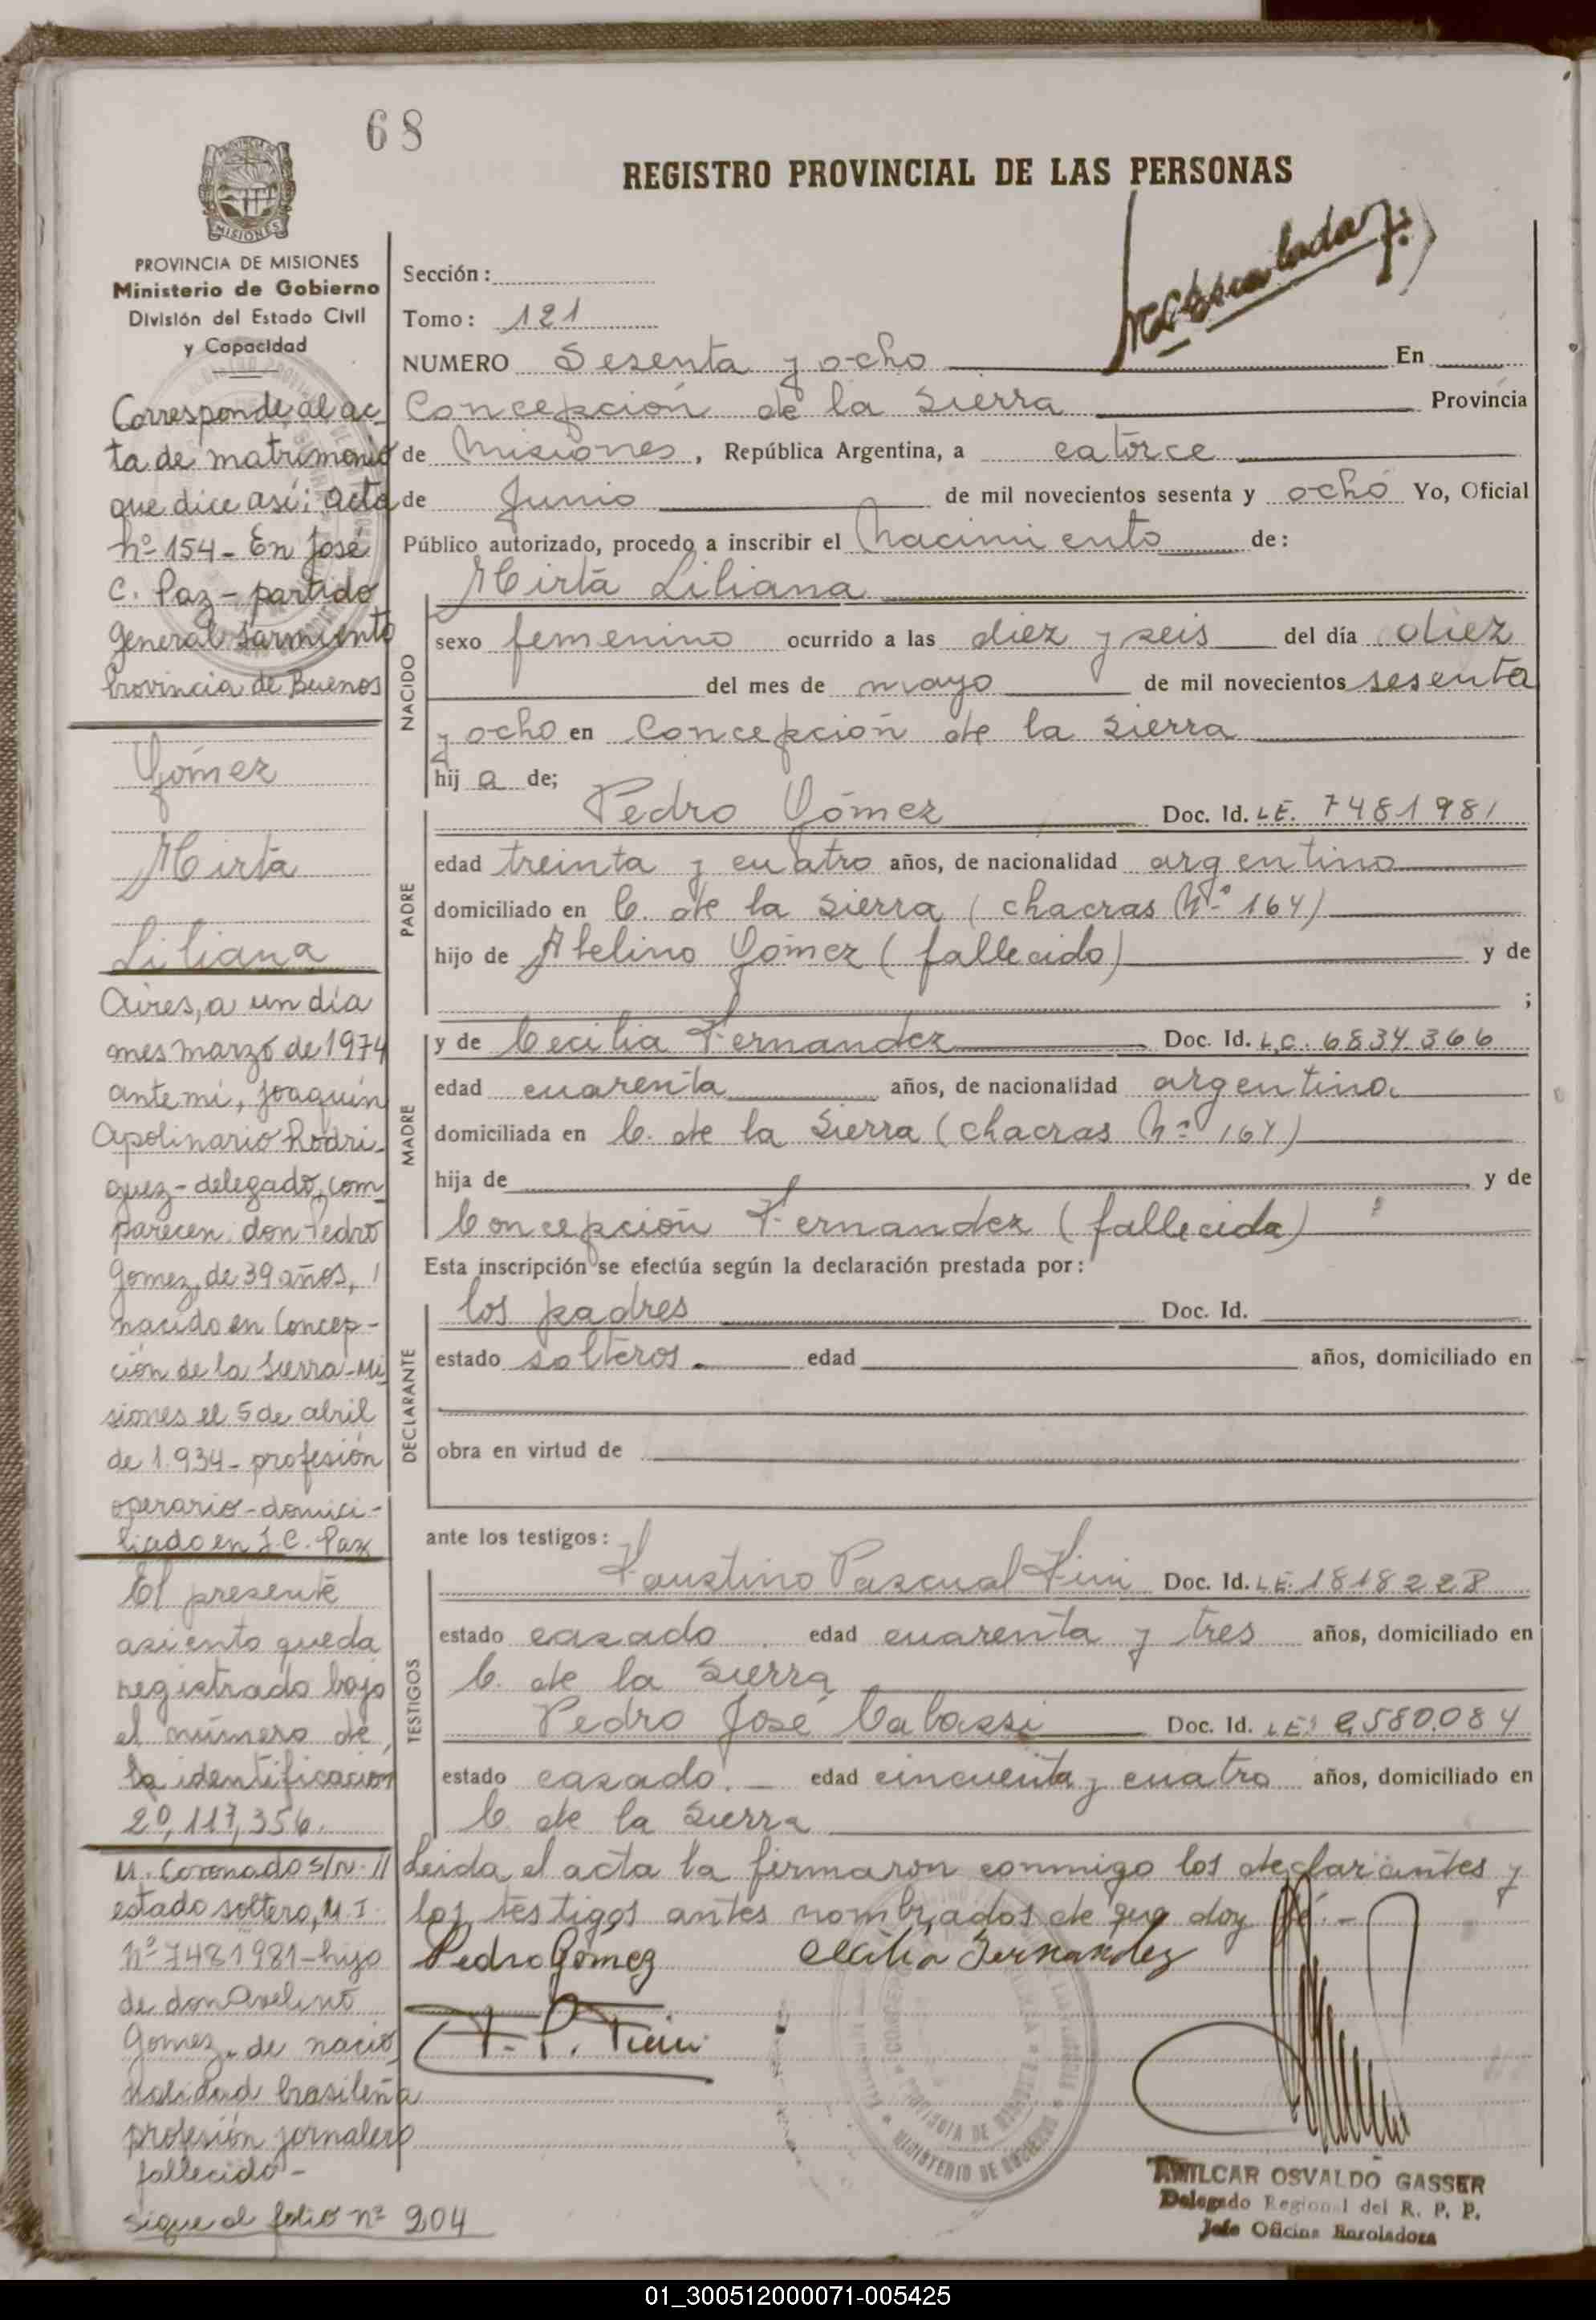 68
REGISTRO PROVINCIAL DE LAS PERSONAS
MISIONES
PROVINCIA DE MISIONES
Ministerio de Gobierno
División del Estado Civil
y Capacidad
Corresponde al ac-
ta de matrimonio
que dice así: acta
nº 154 - En José
C. Paz - partido
General Sarmiento
Provincia de Buenos
Gómez
Mirta
Liliana
Aires, a un día
mes marzo de 1974
ante mí, Joaquín
Apolinario Rodri-
guez - delegado, com-
parecen don Pedro
Gomez, de 39 años,
nacido en Concep-
ción de la Sierra - Mi
siones el 5 de abril
de 1.934 - profesión
operario - domici-
liado en J. C. Paz
El presente
asiento queda
registrado bajo
el número de
la identificación
20,117,356.
M. Coronado S/N. //
estado soltero, M. I.
Nº 7481981 - hijo
de don Avelino
Gomez, de nacio
nalidad brasileña
profesión jornalero
fallecido -
sigue al folio nº 204
Sección:
Tomo: 121
NUMERO Sesenta y ocho En
Concepción de la Sierra Provincia
de Misiones, República Argentina, a catorce
de Junio de mil novecientos sesenta y ocho Yo, Oficial
Público autorizado, procedo a inscribir el Nacimiento de:
NACIDO
Mirta Liliana
sexo femenino ocurrido a las diez y seis del día diez
del mes de mayo de mil novecientos sesenta
y ocho en Concepción de la Sierra
hij a de;
PADRE
Pedro Gómez Doc. Id. L.E. 7481981
edad treinta y cuatro años, de nacionalidad argentino
domiciliado en C. de la Sierra (chacras Nº 164)
hijo de Abelino Gómez (fallecido) y de
;
MADRE
y de Cecilia Fernandez Doc. Id. L.C. 6834.366
edad cuarenta años, de nacionalidad argentina
domiciliada en C. de la Sierra (chacras Nº 164)
hija de y de
Concepción Fernandez (fallecida)
Esta inscripción se efectúa según la declaración prestada por:
DECLARANTE
los padres Doc. Id.
estado solteros. edad años, domiciliado en
obra en virtud de
ante los testigos:
TESTIGOS
Faustino Pascual Doc. Id. L.E. 1818228
estado casado edad cuarenta y tres años, domiciliado en
C. de la Sierra
Pedro José Doc. Id. L.E. 2,580.084
estado casado. - edad cincuenta y cuatro años, domiciliado en
C. de la Sierra
Leida el acta la firmaron conmigo los declarantes y
los testigos antes nombrados de que doy fé. -
Pedro Gómez Cecilia Fernandez
F. P.
AMILCAR OSVALDO GASSER
Delegado Regional del R. P. P.
Jefe Oficina Enroladora
01_300512000071-005425